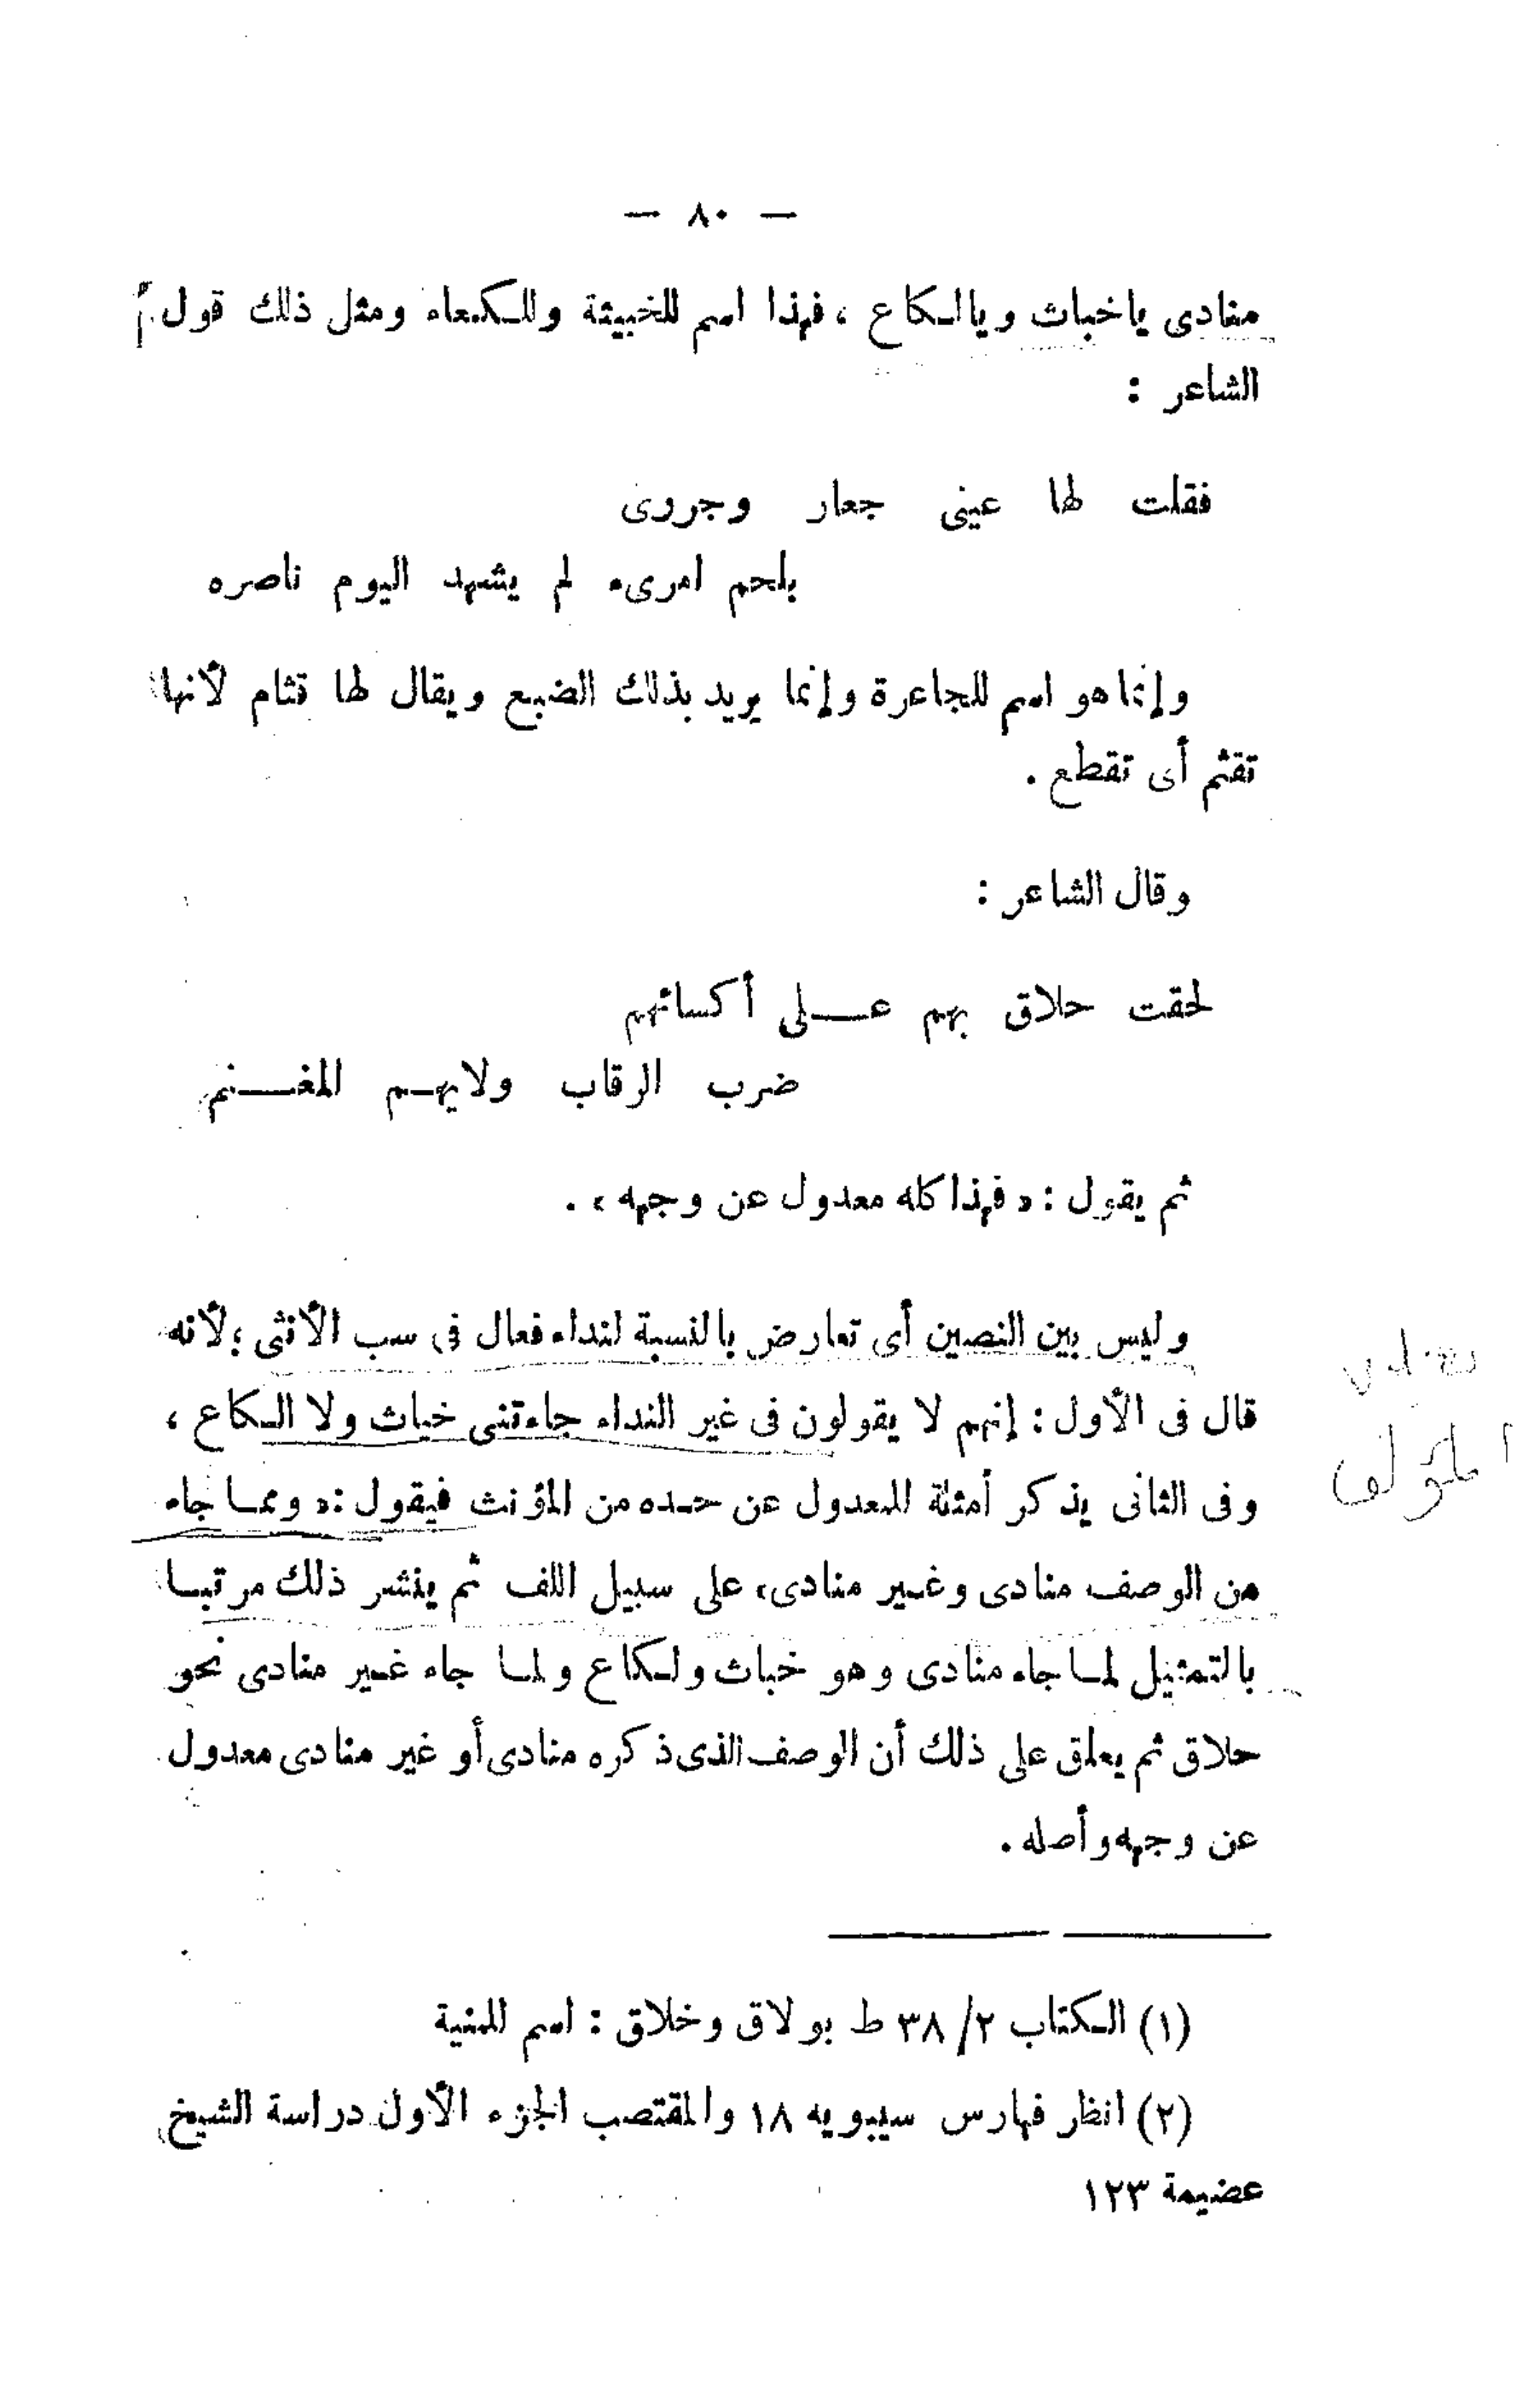 — ٨٠ —
منادى ياخباث ويالـكاع ، فهذا اسم للخبيثة وللـكعاء ومثل ذلك قول
الشاعر :
فقلت لها عيثى جعار وجررى
بلحم امرىء لم يشهد اليوم ناصره
وإنما هو اسم للجاعرة وإنما يريد بذلك الضبع ويقال لها قثام لأنها
تقثم أى تقطع .
وقال الشاعر :
لحقت حلاق بهم عـــلى أكسائهم
ضرب الرقاب ولايهـم المغـــنم
ثم يقول : « فهذا كله معدول عن وجهه » .
وليس بين النصين أى تعارض بالنسبة لنداء فعال فى سب الأنثى ؛ لأنه
قال فى الأول : إنهم لا يقولون فى غير النداء جاءتنى خباث ولا الـكاع ،
وفى الثانى يذكر أمثلة للمعدول عن حـده من المؤنث فيقول : « وممـا جاء
من الوصف منادى وغـير منادى» على سبيل اللف ثم ينشر ذلك مرتبـا
بالتمثيل لمـا جاء منادى وهو خباث ولـكاع ولمـا جاء غـير منادى نحو
حلاق ثم يعلق على ذلك أن الوصف الذى ذكره منادى أو غير منادى معدول
عن وجهه وأصله .
المؤلف
(١) الـكتاب ٢/ ٣٨ ط بولاق وخلاق : اسم للمنية
(٢) انظر فهارس سيبويه ١٨ والمقتصب الجزء الأول دراسة الشيخ
عضيمة ١٢٣